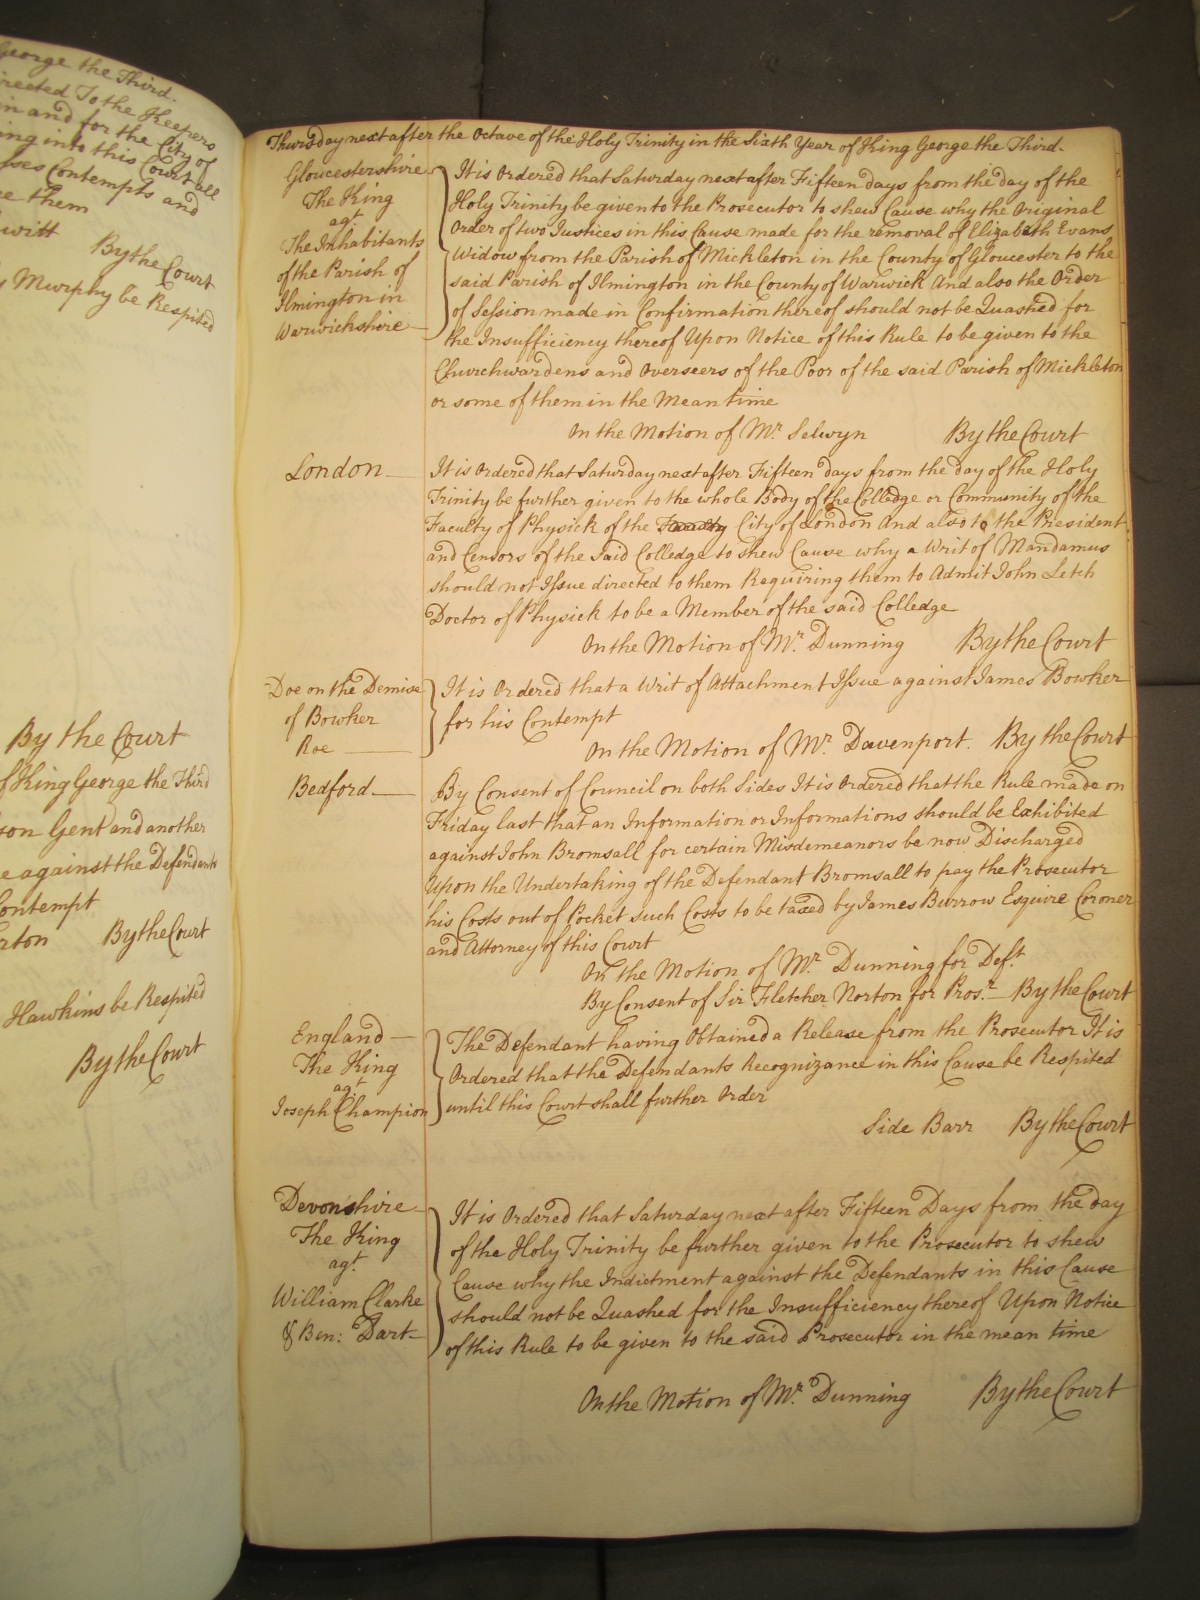 George the Third.
directed To the Keepers
in and for the City of
ing into this Court all
Contempts and
them
By the Court
Murphy be Respited
By the Court
of King George the Third
son Gent and another
e against the Defendants
Contempt
rton By the Court
Hawkins be Respited
By the Court
Thursday next after the Octave of the Holy Trinity in the Sixth Year of King George the Third.
Gloucestershire
The King
agt
The Inhabitants
of the Parish of
Ilmington in
Warwickshire
It is Ordered that Saturday next after Fifteen days from the day of the
Holy Trinity be given to the Prosecutor to shew Cause why the Original
Order of two Justices in this Cause made for the removal of Elizabeth Evans
Widow from the Parish of Mickleton in the County of Gloucester to the
said Parish of Ilmington in the County of Warwick And also the Order
of Session made in Confirmation thereof should not be Quashed for
the Insufficiency thereof Upon Notice of this Rule to be given to the
Churchwardens and Overseers of the Poor of the said Parish of Mickleton
or some of them in the Mean time
On the Motion of Mr. Selwyn By the Court
London
It is Ordered that Saturday next after Fifteen Days from the day of the Holy
Trinity be further given to the whole Body of the Colledge or Community of the
Faculty of Physick of the City of London And also to the President
and Censors of the said Colledge to shew Cause why a Writ of Mandamus
should not Issue directed to them Requiring them to Admit John Letch
Doctor of Physick to be a Member of the said Colledge
On the Motion of Mr. Dunning By the Court
Doe on the Demise
of Bowker
Roe
It is Ordered that a Writ of Attachment Issue against James Bowker
for his Contempt
On the Motion of Mr. Davenport. By the Court
Bedford
By Consent of Council on both Sides It is Ordered that the Rule made on
Friday last that an Information or Informations should be Exhibited
against John Bromsall for certain Misdemeanors be now Discharged
Upon the Undertaking of the Defendant Bromsall to pay the Prosecutor
his Costs out of Pocket such Costs to be taxed by James Burrow Esquire Coroner
and Attorney of this Court
On the Motion of Mr. Dunning for Deft.
By Consent of Sir Fletcher Norton for Prosr. By the Court
England
The King
agt
Joseph Champion
The Defendant having Obtained a Release from the Prosecutor It is
Ordered that the Defendants Recognizance in this Cause be Respited
until this Court shall further Order
Side Barr By the Court
Devonshire
The King
agt.
William Clarke
& Ben: Dart
It is Ordered that Saturday next after Fifteen Days from the day
of the Holy Trinity be further given to the Prosecutor to shew
Cause why the Indictment against the Defendants in this Cause
should not be Quashed for the Insufficiency thereof Upon Notice
of this Rule to be given to the said Prosecutor in the mean time
On the Motion of Mr. Dunning By the Court